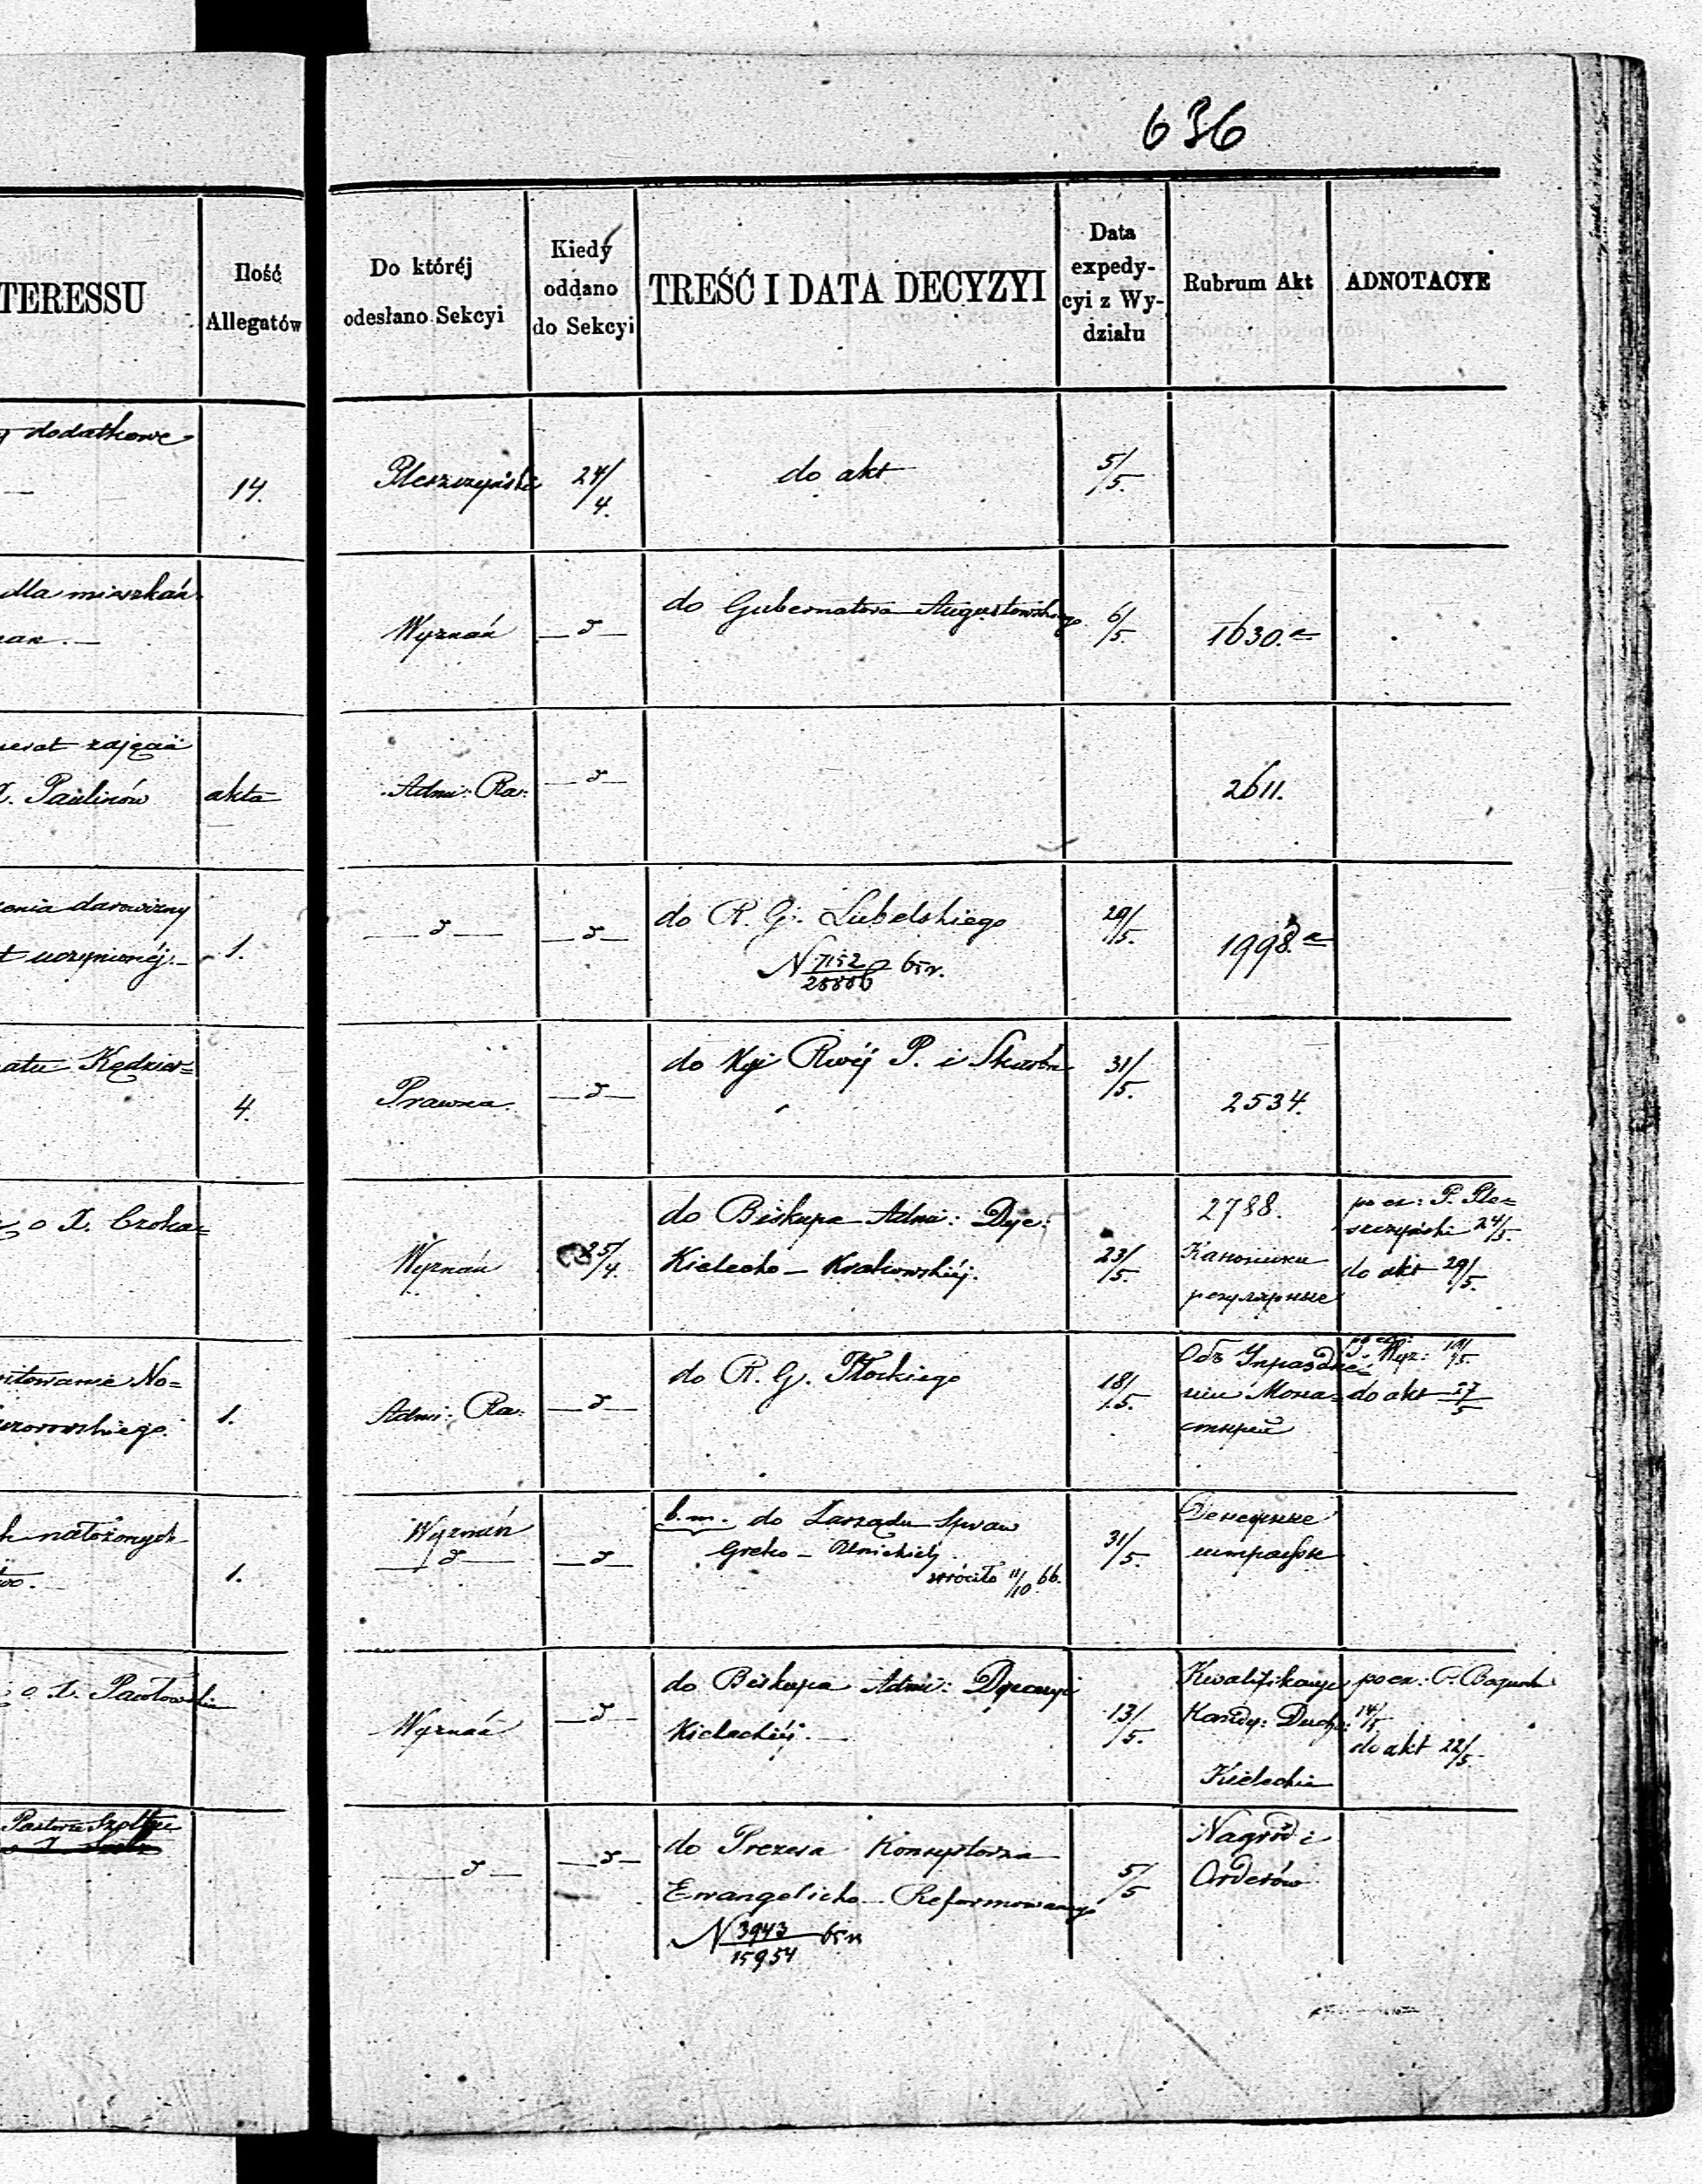 636
TERESSU
Ilość
Allegatów
Do któréj
odesłano Sekcyi
Kiedy
oddano
do Sekcyi
TREŚĆ I DATA DECYZYI
Data
expedy-
cyi z Wy-
działu
Rubrum Akt
ADNOTACYE
dodatkowe
14.
Pleszczyński
24/4.
do akt
5/5.
dla mieszkań
Wyznań
do Gubernatora Augustowskiego
6/5.
1630.a
zajęcia
X. Paulinów
akta
Admi: Ra:
2611.
darowizny
uczynionéj.
1.
do R. G. Lubelskiego
N 7152 65 r.
29/5.
1998.a
Kędzier=
4.
Prawna.
do Kyi Rwéj P. i Skarbu
31/5.
2534.
o X. Czoka=
Wyznań
25/4.
do Biskupa Admi: Dye:
Kielecko - Krakowskiéj.
23/5.
2788.
Каноники
регулярные
po ex: P. Ple=
szczyński 24/5.
do akt 29/5.
No=
1.
Admi: Ra:
do R. G. Płockiego
18/5.
Объ Упраздне=
нiи Мона=
стырей
po ex:
do akt 27/5
nałożonych
1.
Wyznań
b. m. do Zarządu Spraw
Greko - Unickich
wróciło 11/10 66.
31/5.
Денежные
штрафы
o X. Pawłowskim
Wyznań
do Biskupa Admi: Dyecezyi
Kieleckiéj.
13/5.
Kwalifikacye
Kandy: Ducho:
Kieleckie
po ex: P.
14/5
do akt 22/5.
Pastorze
do Prezesa Konsystorza
Ewangelicko Reformowanego
N 3943/15954 65 r
5/5
Nagród i
Orderów